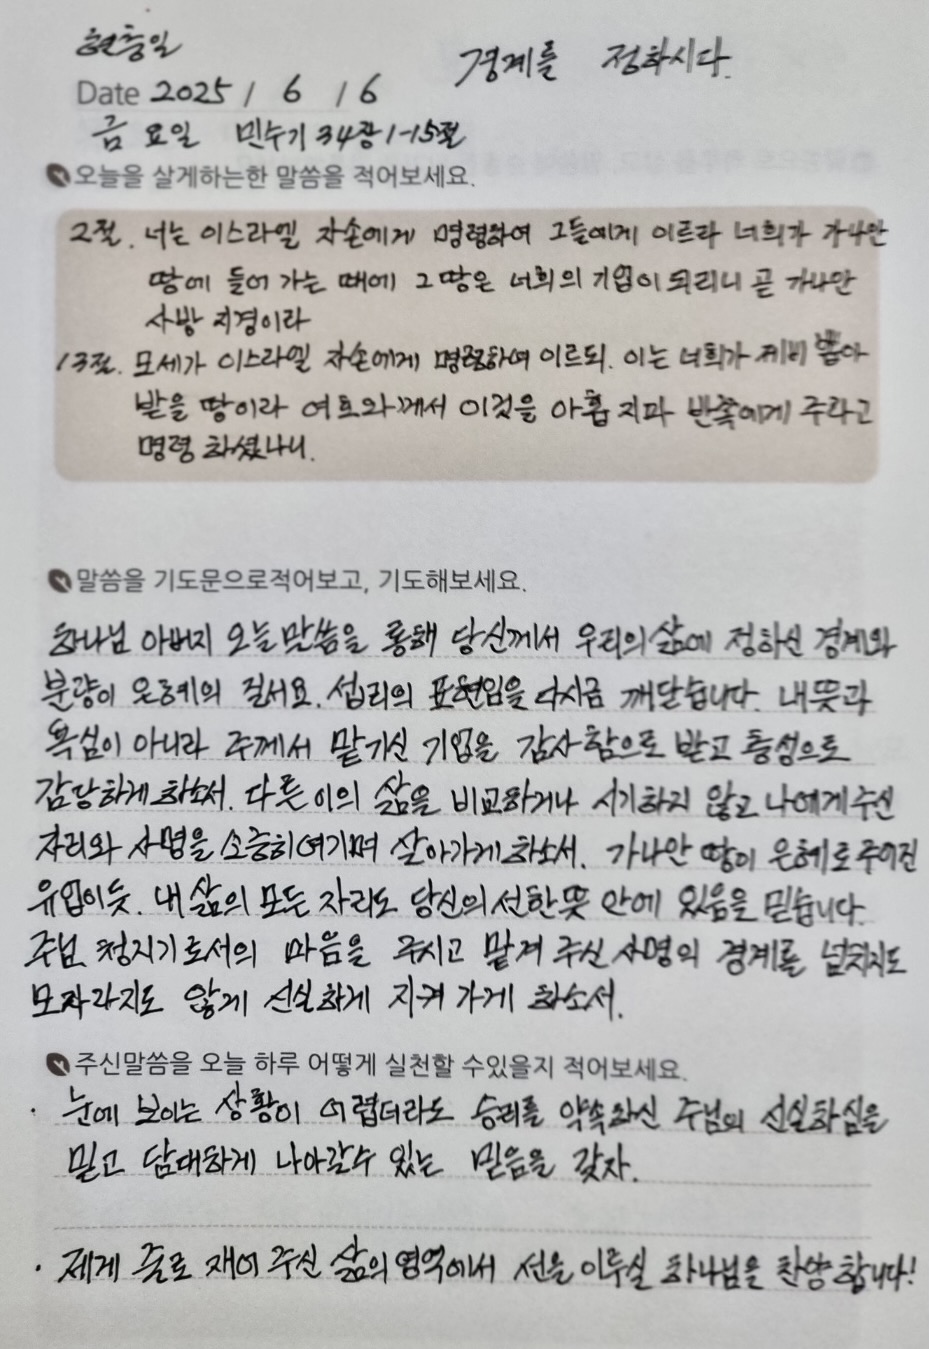 현충일
경계를 정하시다.
Date 2025 / 6 / 6
금요일 민수기 34장 1-15절
오늘을 살게하는한 말씀을 적어보세요.
2절. 너는 이스라엘 자손에게 명령하여 그들에게 이르라 너희가 가나안
땅에 들어 가는 때에 그 땅은 너희의 기업이 되리니 곧 가나안
사방 지경이라
13절. 모세가 이스라엘 자손에게 명령하여 이르되. 이는 너희가 제비 뽑아
받을 땅이라 여호와께서 이것을 아홉 지파 반쪽에게 주라고
명령 하셨나니.
말씀을 기도문으로적어보고, 기도해보세요.
하나님 아버지 오늘말씀을 통해 당신께서 우리의삶에 정하신 경계와
분량이 은혜의 질서요. 섭리의 표현임을 다시금 깨닫습니다. 내뜻과
욕심이 아니라 주께서 맡기신 기업을 감사함으로 받고 충성으로
감당하게하소서. 다른이의 삶을 비교하거나 시기하지 않고 나에게주신
자리와 사명을 소중히여기며 살아가게하소서. 가나안 땅이 은혜로주어진
유업이듯. 내삶의 모든 자리도 당신의선한뜻 안에 있음을 믿습니다.
주님 청지기로서의 마음을 주시고 맡겨 주신사명의 경계를 넘치지도
모자라지도 않게 신실하게 지켜가게 하소서.
주신말씀을 오늘 하루 어떻게 실천할 수있을지 적어보세요.
· 눈에 보이는 상황이 어렵더라도 승리를 약속하신 주님의 신실하심을
믿고 담대하게 나아갈수 있는 믿음을 갖자.
· 제게 줄로 재어주신 삶의영역에서 선을이루실 하나님을 찬양합니다!